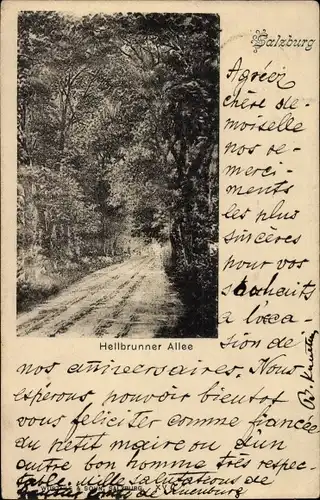 Salzburg
Agréez
chère de-
moiselle
nos re-
merci-
ments
les plus
sincères
pour vos
souhaits
à l'occa-
sion de
Hellbrunner Allee
nos anniversaires. Nous
espérons, pouvoir bientôt
vous féliciter comme fiancée
du petit maire ou d'un
autre bon homme très respec-
table. Mille salutations de